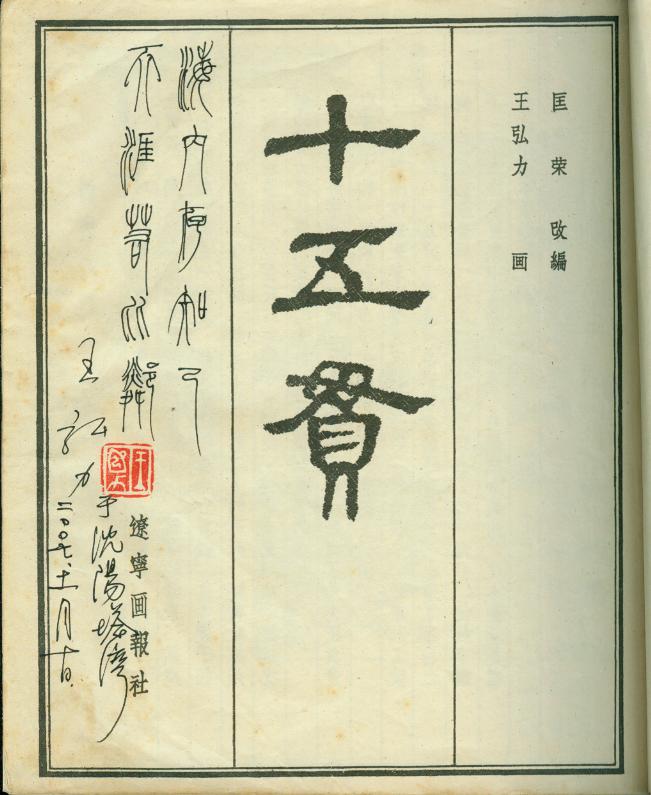 匡荣 改編
王弘力 画
十五貫
海内存知己
天涯若比鄰
遼寧画報社
王弘力
于沈陽塔灣
二〇〇七.十一月十日